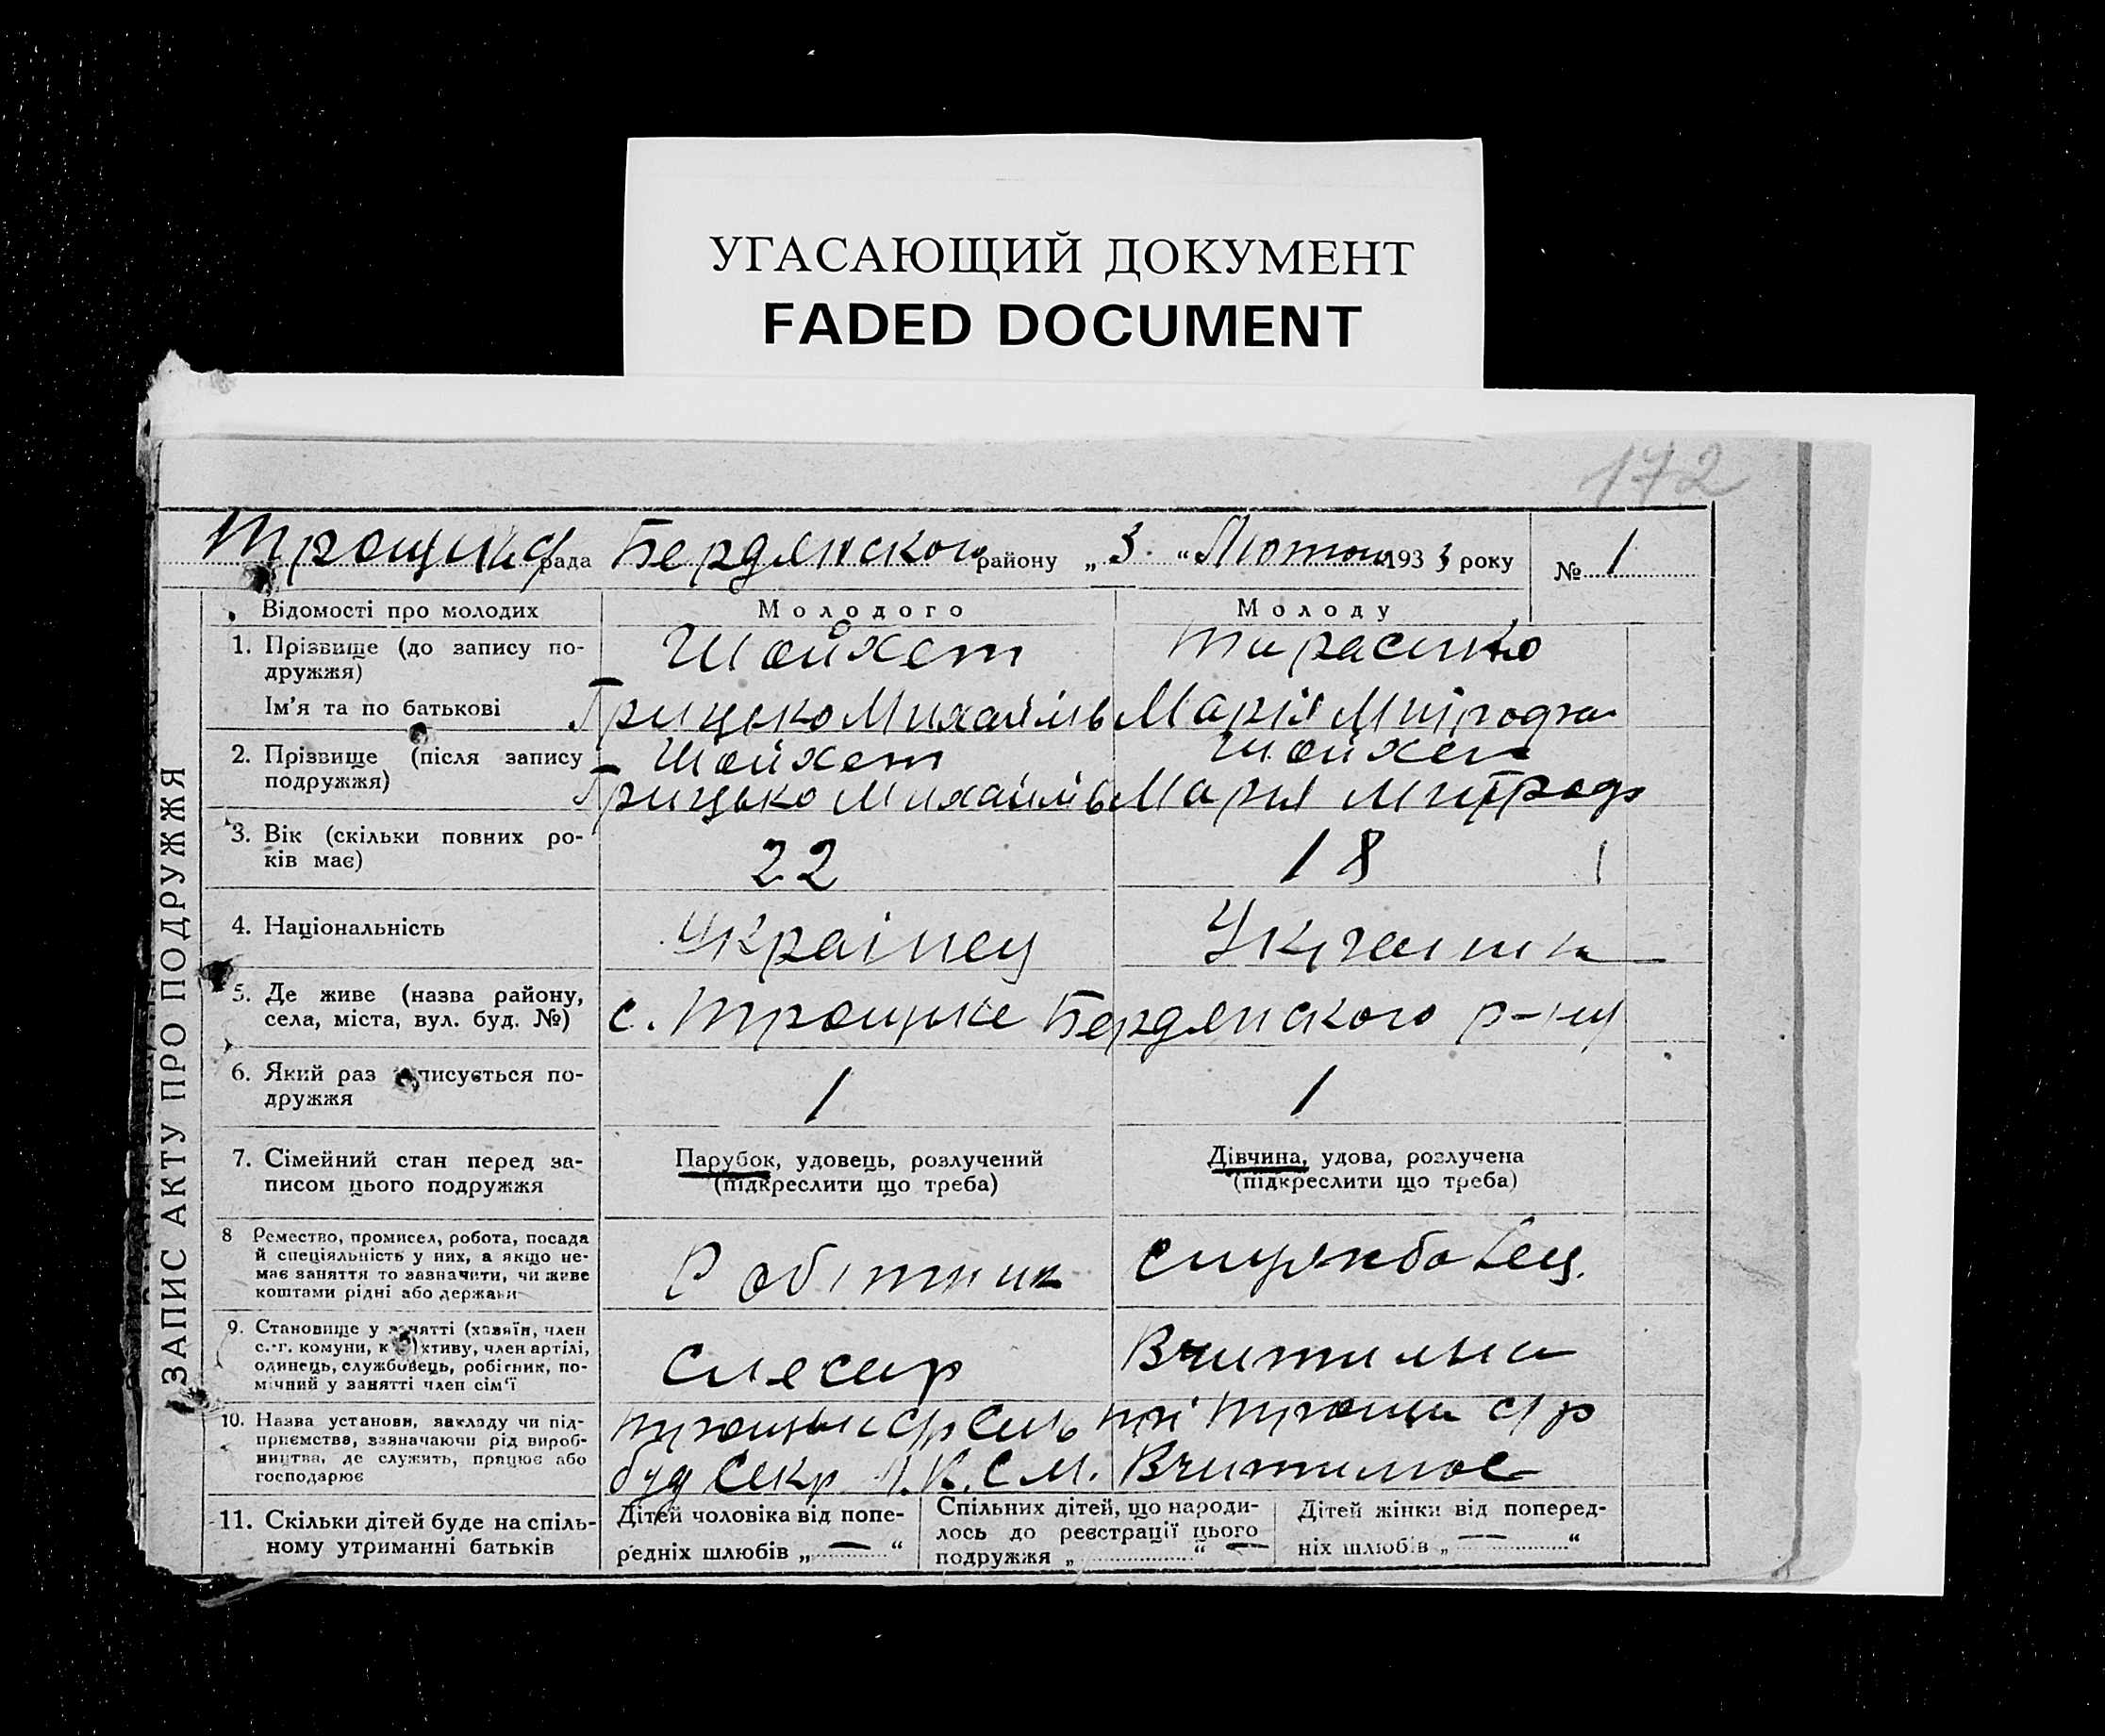 УГАСАЮЩИЙ ДОКУМЕНТ
FADED DOCUMENT
172
рада Бердянского району „ 3. “ Лютого 193 3 року № 1
ЗАПИС АКТУ ПРО ПОДРУЖЖЯ
Відомості про молодих Молодого Молоду
1. Прізвище (до запису по-
дружжя)
Шойхет Тарасенко
Ім'я та по батькові Грицько Михайлів Марія
2. Прізвище (після запису
подружжя)
Шойхет Шойхет
Грицько Михайлів Марія
3. Вік (скільки повних ро-
ків має)
22 18
4. Національність Українец
5. Де живе (назва району,
села, міста, вул. буд. №)
с. Троцьке Бердянского р-ну
6. Який раз записується по-
дружжя
1 1
7. Сімейний стан перед за-
писом цього подружжя
Парубок, удовець, розлучений
(підкреслити що треба)
Дівчина, удова, розлучена
(підкреслити що треба)
8 Ремество, промисел, робота, посада
й спеціяльність у них, а якщо не-
має заняття то зазначити, чи живе
коштами рідні або держави
Робітник службовец.
9. Становище у занятті (хазяїн, член
с.-г. комуни, колективу, член артілі,
одинець, службовець, робітник, по-
мічний у занятті член сім'ї
Слесар Вчителька
10. Назва установи, закладу чи під-
приємства, зазначаючи рід вироб-
ництва, де служить, працює або
господарює
с/р Сель при с/р
буд Секр Л.К.С.М.
11. Скільки дітей буде на спіль-
ному утриманні батьків
Дітей чоловіка від попе-
редніх шлюбів „ — “
Спільних дітей, що народи-
лось до реєстрації цього
подружжя „ “ —
Дітей жінки від поперед-
ніх шлюбів „ — “